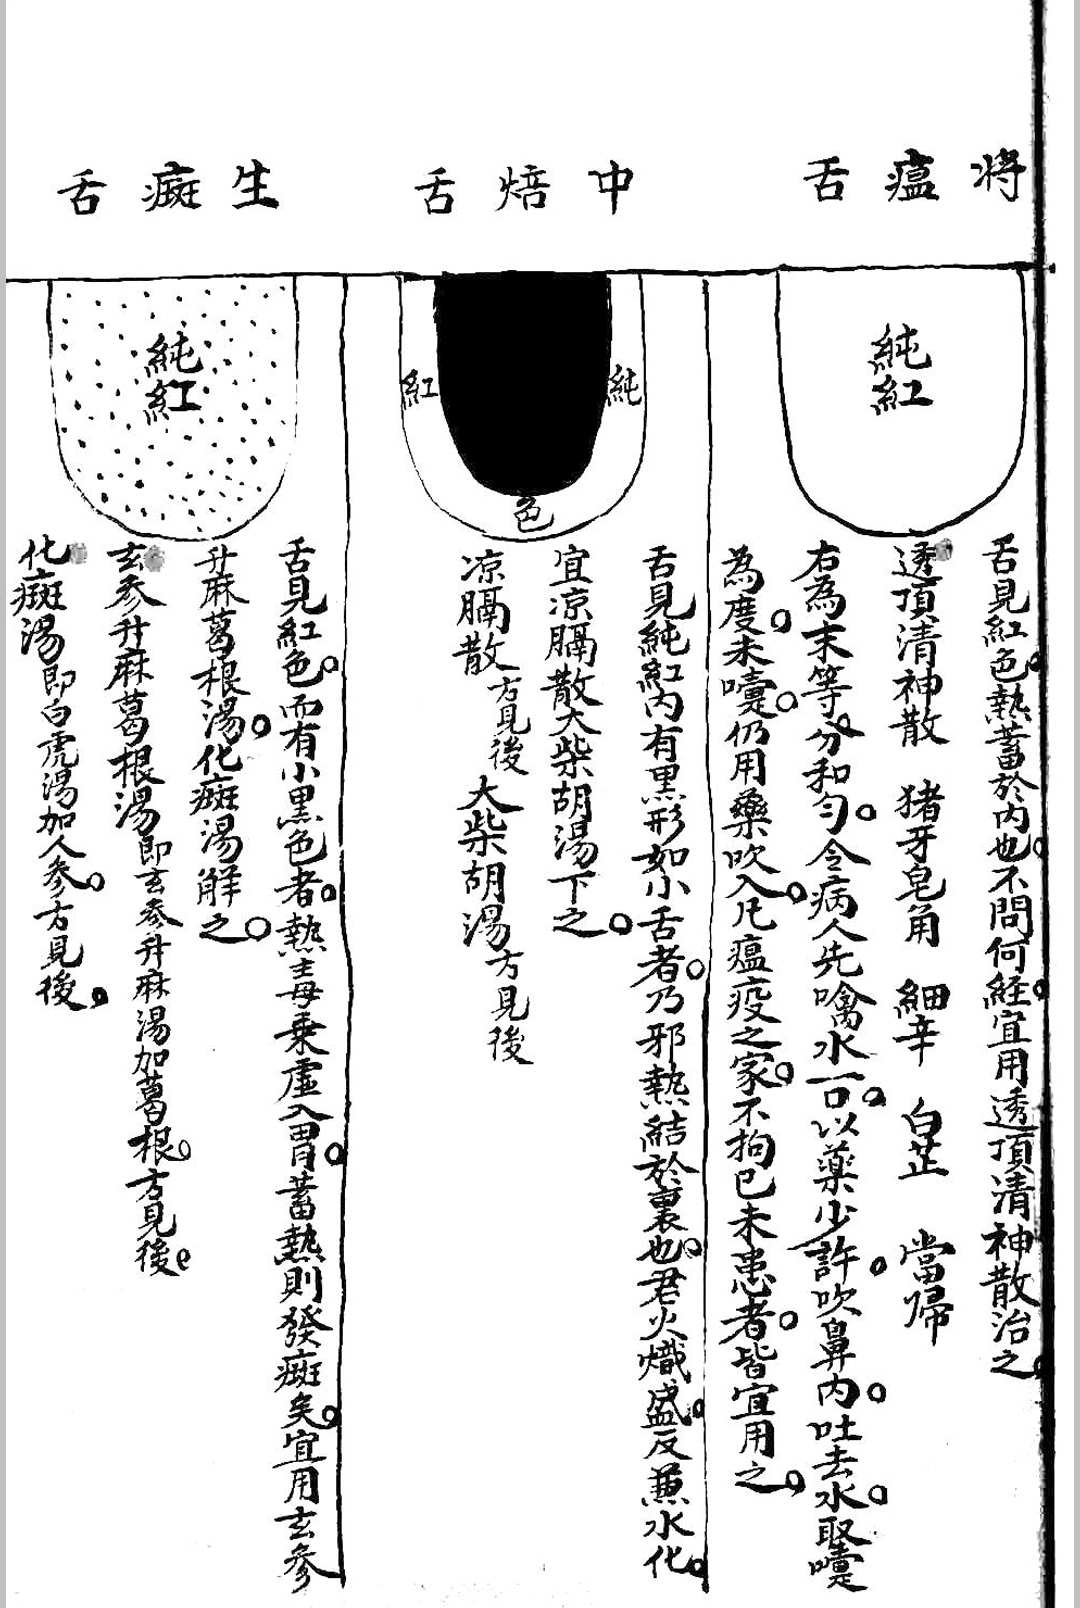 將瘟舌
純紅
舌見紅色熱蓄於内也不問何經宜用透頂清神散治之
透頂清神散　猪牙皂角　細辛　白芷　當歸
右為末等分和勻令病人先噙水一口以藥少許吹鼻内吐去水取嚏
為度未嚏仍用藥吹入凡瘟疫之家不拘已未患者皆宜用之
中焙舌
純
紅
色
舌見純紅内有黑形如小舌者乃邪熱結於裏也君火熾盛反兼水化
宜凉膈散大柴胡湯下之
凉膈散方見後　大柴胡湯方見後
生癍舌
純紅
舌見紅色而有小黑色者熱毒乗虚入胃蓄熱則發癍矣宜用玄參
升麻葛根湯化癍湯解之
玄參升麻葛根湯即玄參升麻湯加葛根方見後
化癍湯即白虎湯加人參方見後